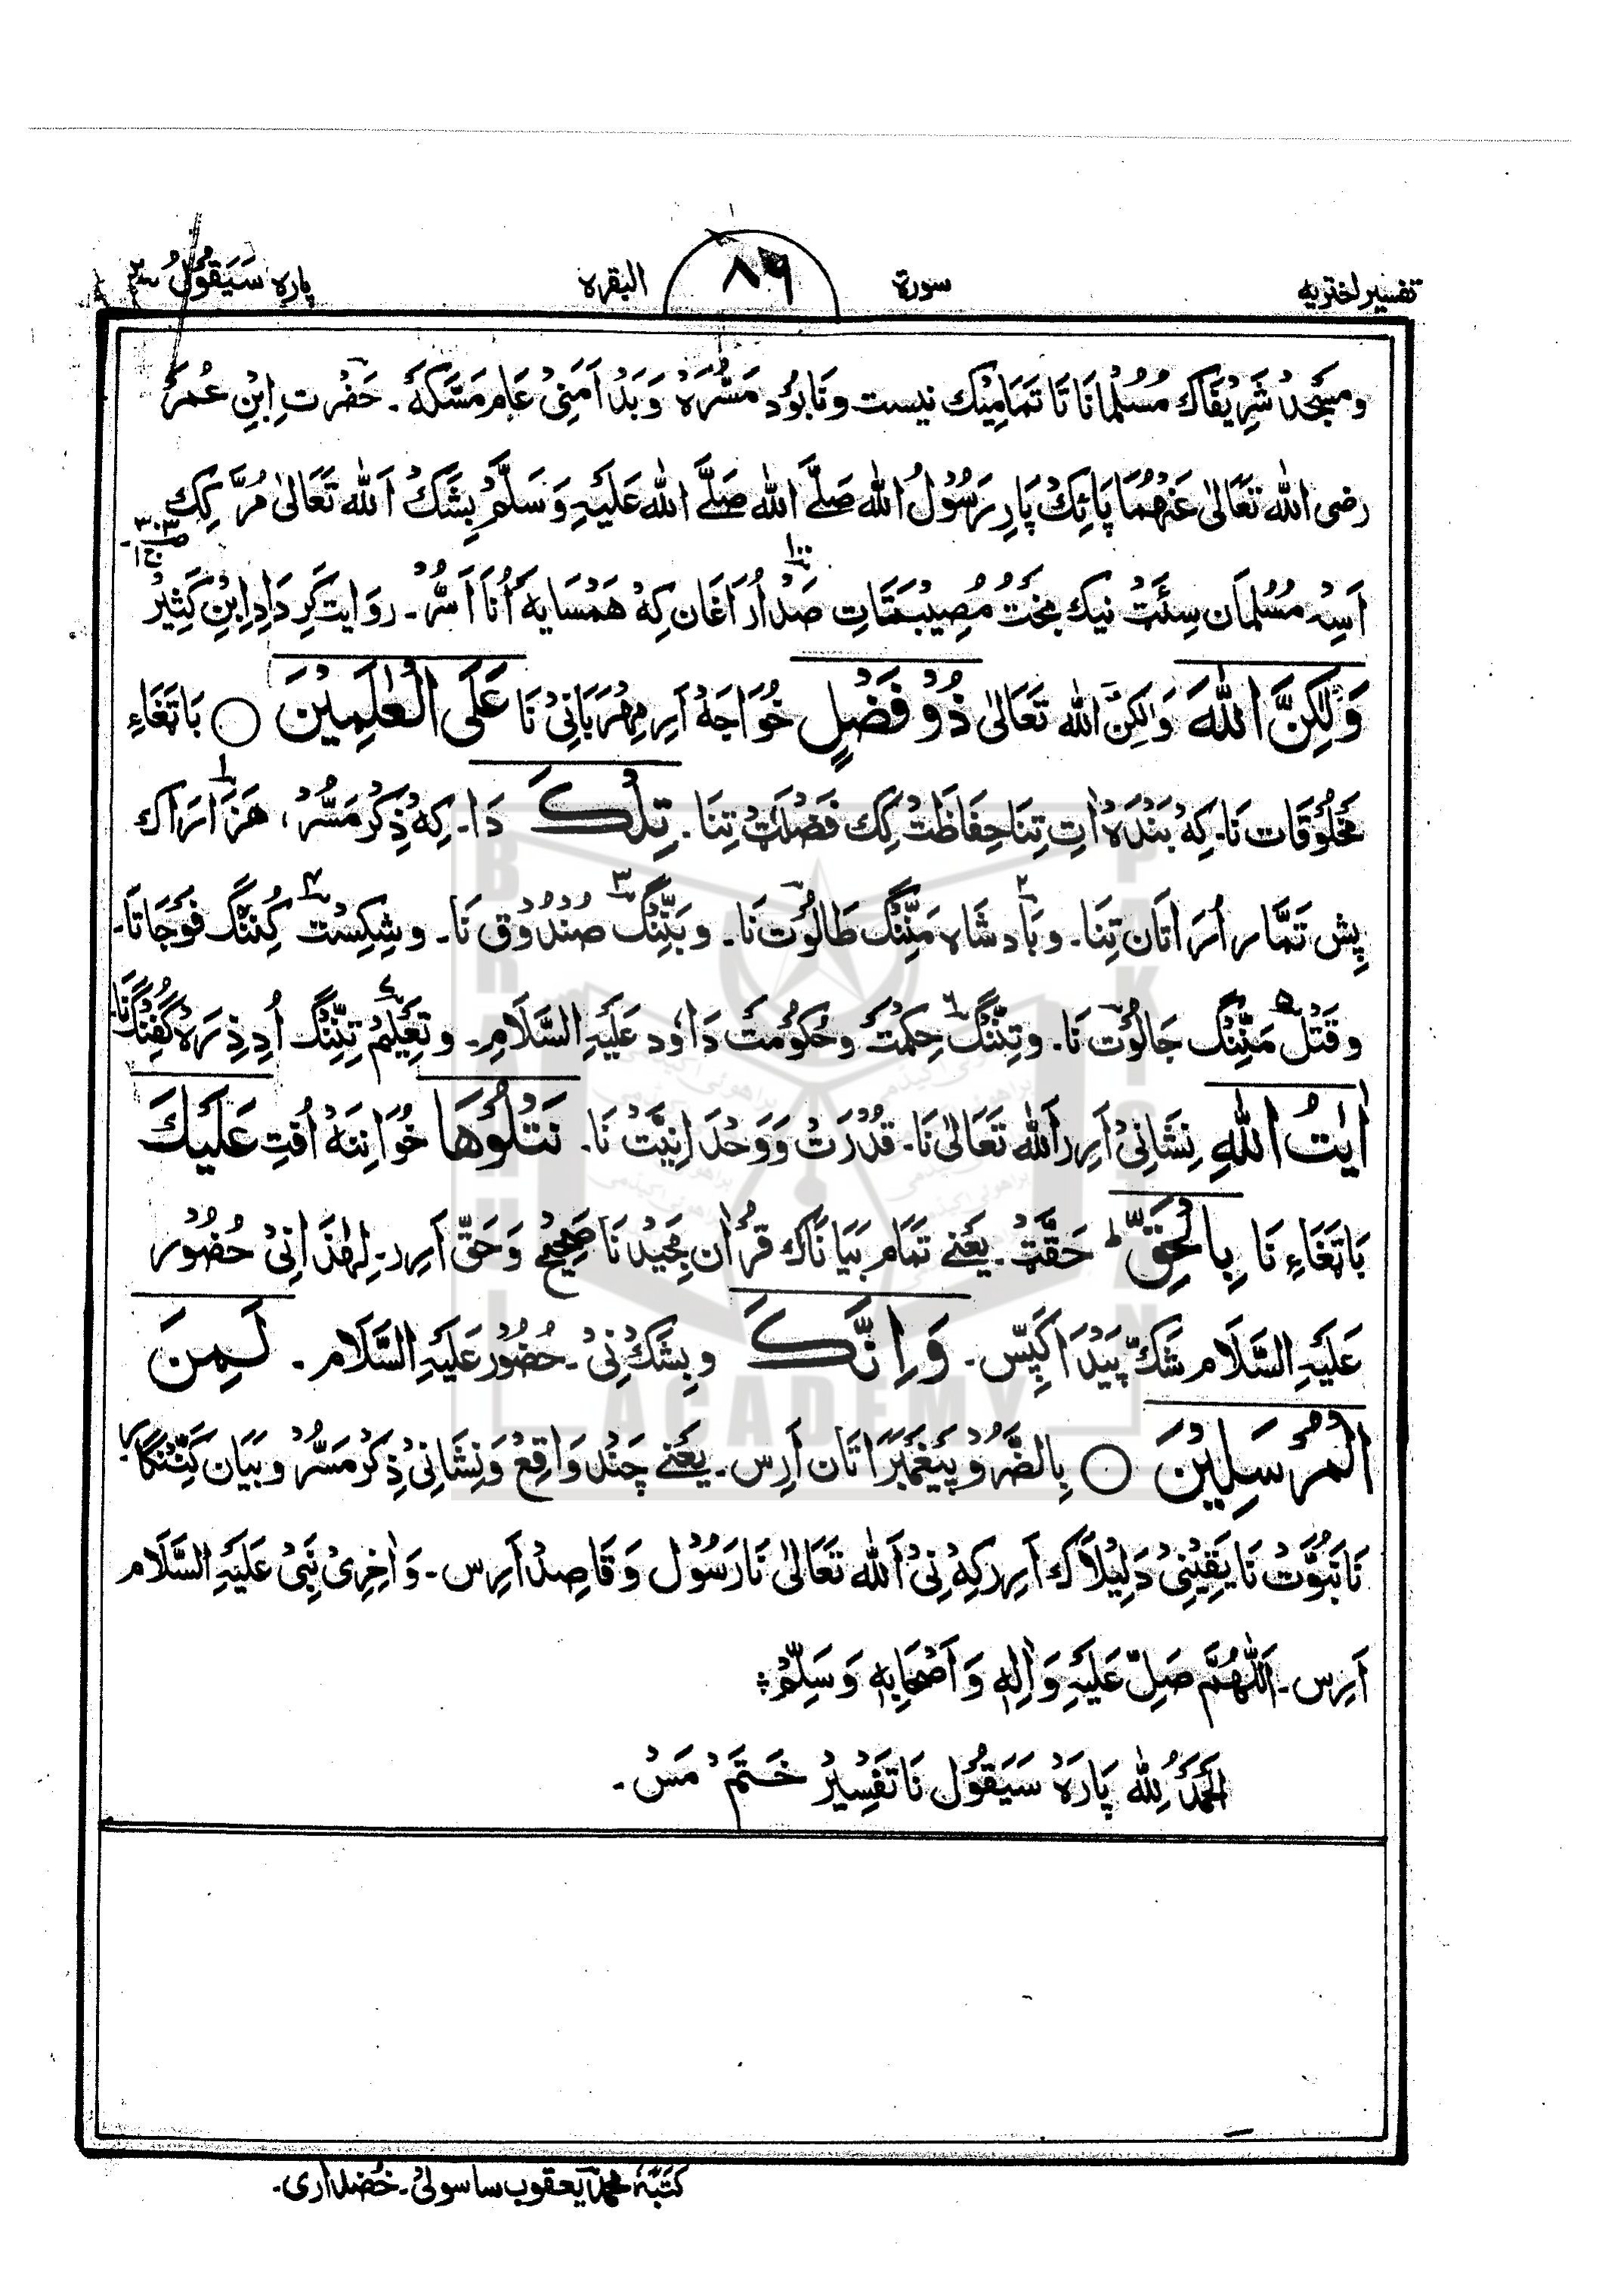 تفسیر اختریه سورۃ ۸۶ البقره پاره سَیَقُوْلُ ۲
ومسجِدْ شَرِیْفَاکْ مُسُلْمانَا تَا تَمَامِیْک نیست ونَابُوْد مَسُّرَه وَبَدْ اَمَنِیْ عَام مَسَّکَهْ۔ حَضْرت اِبْنِ عُمَرَ
رضی الله تَعَالیٰ عَنْهُمَا پَائِکْ پَارِ رَسُوْلُ الله صَلَّے الله صَلَّے الله عَلَیْهِ وَسَلَّمْ بِشَکْ اَلله تَعَالیٰ مُرَّ کِک
ص۳۰۳ ج۱
اَسِهْ مُسُلمَان سِئَتْ نیک بَخْتْ مُصِیْبَتَاتِ صَدْ ۱۰۰ اُرَاغَان کِهْ هَمْسَایَهْ اُنَا اَسُّرْ۔ روَایت کَرِ دَادِ اِبْنِ کَثِیْرْ
وَلٰکِنَّ اللهَ وَلٰکِنَّ الله تَعَالیٰ ذُوْ فَضْلٍ خُوَاجَهْ اَرِ مِهْرَبَانِیْ نَا عَلَی الْعٰلَمِیْنَ ○ بَاتَغَاءِ
مَخْلُوْقَات نَا۔ کِهْ بَنْدَهْ اٰتِ تِنَا حِفَاظَتْ کِک فَضْلَتْ تِنَا۔ تِلْکَ دَا۔ کِهْ ذِکْرْ مَسُّرْ، هَزَارَاک ۱
پِش تَمَّار اُرَاتَان تِنَا۔ و بَادشَاه ۲ مَنِّنْگ طَالُوْت نَا۔ و بَنِّنْگ ۳ صَنْدُوْق نَا۔ و شِکِسْت ۴ کِنِنْگ فَوْجَاتَا۔
و قَتْل ۵ مَنِّنْگ جَالُوْت نَا۔ و تِنِّنْگ ۶ حِکْمَتْ و حُکُوْمَتْ دَاوٗد عَلَیْهِ السَّلَام۔ و تَعْلِیْمْ ۷ تِنِّنْگ اُدِ ذِرَهْ گُفِنْگ نَا
اٰیٰتُ اللهِ نِشَانِیْ اَرِر اَلله تَعَالیٰ نَا۔ قُدْرَتْ وَ وَحْدَانِیَّتْ نَا۔ نَتْلُوْهَا خُوَانِنَهْ اُفْتِ عَلَیْکَ
بَاتَغَاءِ نَا بِالْحَقِّ ؕ حَقَّتْ۔ یَعْنے تَمَام بَیَانَاک قُرْاٰن مَجِیْد نَا صَحِیْح وَ حَقّ اَرِر۔ لِهٰذَا نِیْ حُضُوْر
عَلَیْهِ السَّلَام شَکّ پَیْدَا کَپِّس۔ وَاِنَّکَ و بِشَکْ نِیْ۔ حُضُوْر عَلَیْهِ السَّلَام ۔ لَمِنَ
الْمُرْسَلِیْنَ ○ بِالضَّرُوْ پَیْغَمْبَرَاتَان اَرِس۔ یَعْنے چَنْد وَاقِعْ وَ نِشَانِیْ ذِکْرْ مَسُّرْ و بَیَان کَنِّنْگار
نَا نَبُوَّتْ نَا یَقِیْنِیْ دَلِیْلَاک اَرِر کِهْ نِیْ اَلله تَعَالیٰ نَا رَسُوْل وَ قَاصِدْ اَرِس۔ وَ اٰخِرِیْ نَبِیْ عَلَیْهِ السَّلَام
اَرِس۔ اَللّٰهُمَّ صَلِّ عَلَیْهِ وَ اٰلِهٖ وَ اَصْحَابِهٖ وَ سَلِّمْ
اَلْحَمْدُ لِلّٰه پَارَهْ سَیَقُوْل نَا تَفْسِیْرْ خَتَمْ مَسْ۔
کَتَبَهٗ محمد یعقوب ساسولیْ۔ خضداری۔
BRAHUI ACADEMY PAKISTAN